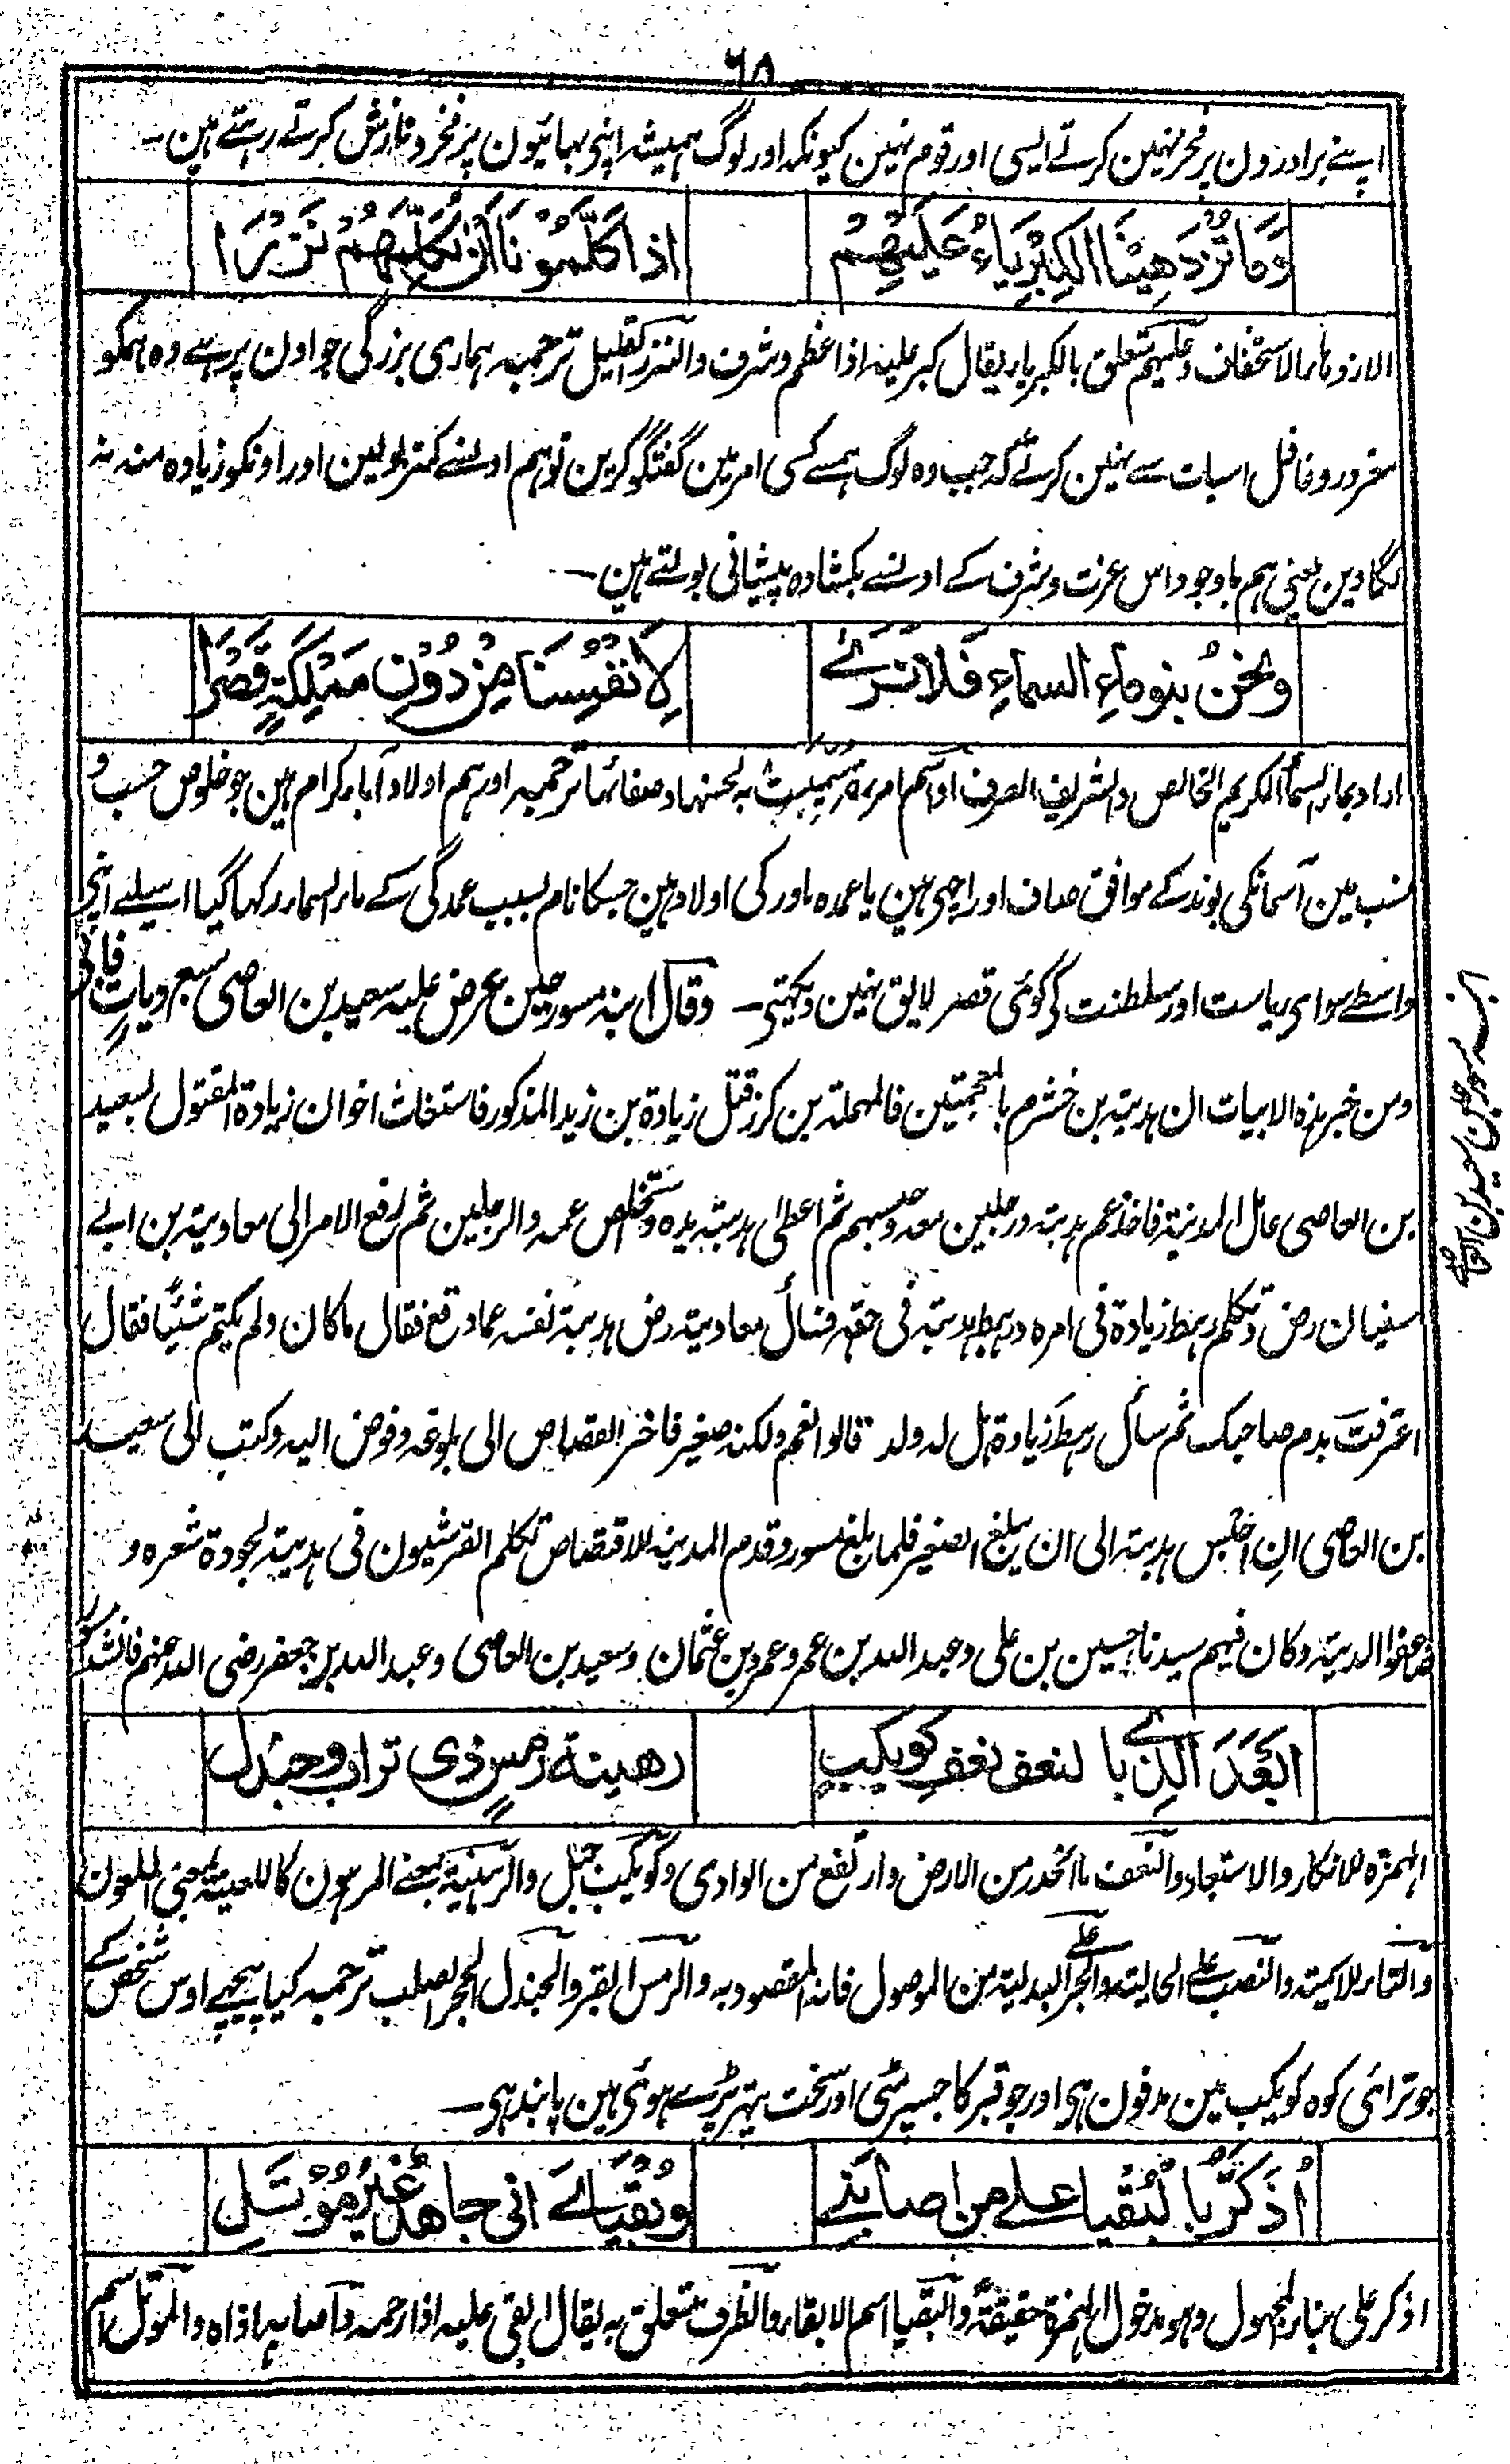 ٦٥
اپنے برادرون پر فخر نہین کرتے ایسی اور قوم نہین کیونکہ اور لوگ ہمیشہ اپنی بہائیون پر فخر و نازش کرتے رہتے ہین ۔
وَمَا تَزْدَهِيْنَا الْكِبْرِيَاءُ عَلَيْهِمْ اذا كَلَّمُوْنَا اَنْ نُكَلِّمَهُمْ نَزْرًا
الازدہاء الاستخفاف وعلیہم متعلق بالکبریاء یقال کبر علیہ اذا عظم و شرف والنزر القلیل ترجمہ ہماری بزرگی جو اون پر ہے وہ ہمکو
مغرور و غافل اسبات سے نہین کرتے کہ جب وہ لوگ ہمسے کسی امر مین گفتگو کرین تو ہم اونسے کمتر بولین اور اونکو زیادہ منہ نہ
لگاوین یعنی ہم باوجود اس عزت و شرف کے اونسے بکشادہ پیشانی بولتے ہین ۔
ونحنُ بنو ماءِ السماءِ فَلَا نَرٰے لِاَنْفُسِنَا مِنْ دُوْنِ مَمْلَكَةٍ قَصْرًا
اراد بماء السماء الکریم الخالص والشریف الصرف او اسم امرءۃ سمیت بہ لحسنہا و صفائہا ترجمہ اور ہم اولاد آباء کرام ہین جو خلوص حسب و
نسب مین آسمانکی بوند کے موافق صاف اور اچہی ہین یا عمدہ مادر کی اولاد ہین جسکا نام بسبب عمدگی کے ماء السماء رکہا گیا اسیلیے اپنی
واسطے سوای ریاست اور سلطنت کی کوئی قصر لایق نہین دیکہتی ۔ وقال ابنہ مسور حین عرض علیہ سعید بن العاصی سبع دیات فابی
ومن خبر ہذہ الابیات ان ہدبۃ بن خشرم بالمعجمتین فالمہملۃ بن کرز قتل زیادۃ بن زید المذکور فاستغاث اخوان زیادۃ المقتول لسعید
بن العاصی عامل المدینۃ فاخذ عم ہدبۃ ورجلین معہ وحبسہم ثم اعطی ہدبۃ یدہ وتخلص عمہ والرجلین ثم رفع الامر الی معاویۃ بن ابے
سفیان رض وتکلم رہط زیادۃ فی امرہ ورہط ہدبۃ فی حقہ فسأل معاویۃ رض ہدبۃ نفسہ عما وقع فقال ما کان ولم یکتم شئیًا فقال
اعترفت بدم صاحبک ثم سأل رہط زیادۃ ہل لہ ولد قالوا نعم ولکنہ صغیر فاخر القصاص الی بلوغہ وفوض الیہ وکتب الی سعید
بن العاصی انِ احبس ہدبۃ الی ان یبلغ الصغیر فلما بلغ مسور وقدم المدینۃ للاقتصاص تکلم القرشیون فی ہدبۃ لجودۃ شعرہ و
ضاعفوا الدیۃ وکان فیہم سیدنا حسین بن علی وعبد اللہ بن عمر وعمرو بن عثمان وسعید بن العاصی وعبد اللہ بن جعفر رضی اللہ عنہم فانشد مسور
ابن مسور حین سعید بن العاصی
اَبَعْدَ الَّذِے با لنعف نعفِ كويكبٍ رهينةِ رمسٍ ذی ترابٍ وجندلِ
الہمزۃ للانکار والاستبعاد والنعف ما انحدر من الارض وارتفع من الوادی وکویکب جبل والرہینۃ بمعنے المرہون کاللعینۃ بمعنی الملعون
والتاء للاسمیۃ والنصب علی الحالیۃ والجر علی البدلیۃ من الموصول فانہ المقصود بہ والرمس القبر والجندل الحجر الصلب ترجمہ کیا پیچہے اوس شخص کے
جو ترائی کوہ کویکب مین مدفون ہی اور جو قبر کا جسپر مٹی اور سخت پتہر پڑے ہوئی ہین پابند ہی ۔
اُذَكَّرُ بِالْبُقْيا علے من اصابنے وَبُقْيَاےَ انی جاهدٌ غَيْرُ مُؤْتَلِ
اذکر علی بناء المجہول وہو مدخول الہمزۃ حقیقۃً والبقیا اسم الابقاء والظرف متعلق بہ یقال ابقی علیہ اذا رحمہ واصابہ اذاہ والمؤتل اسم